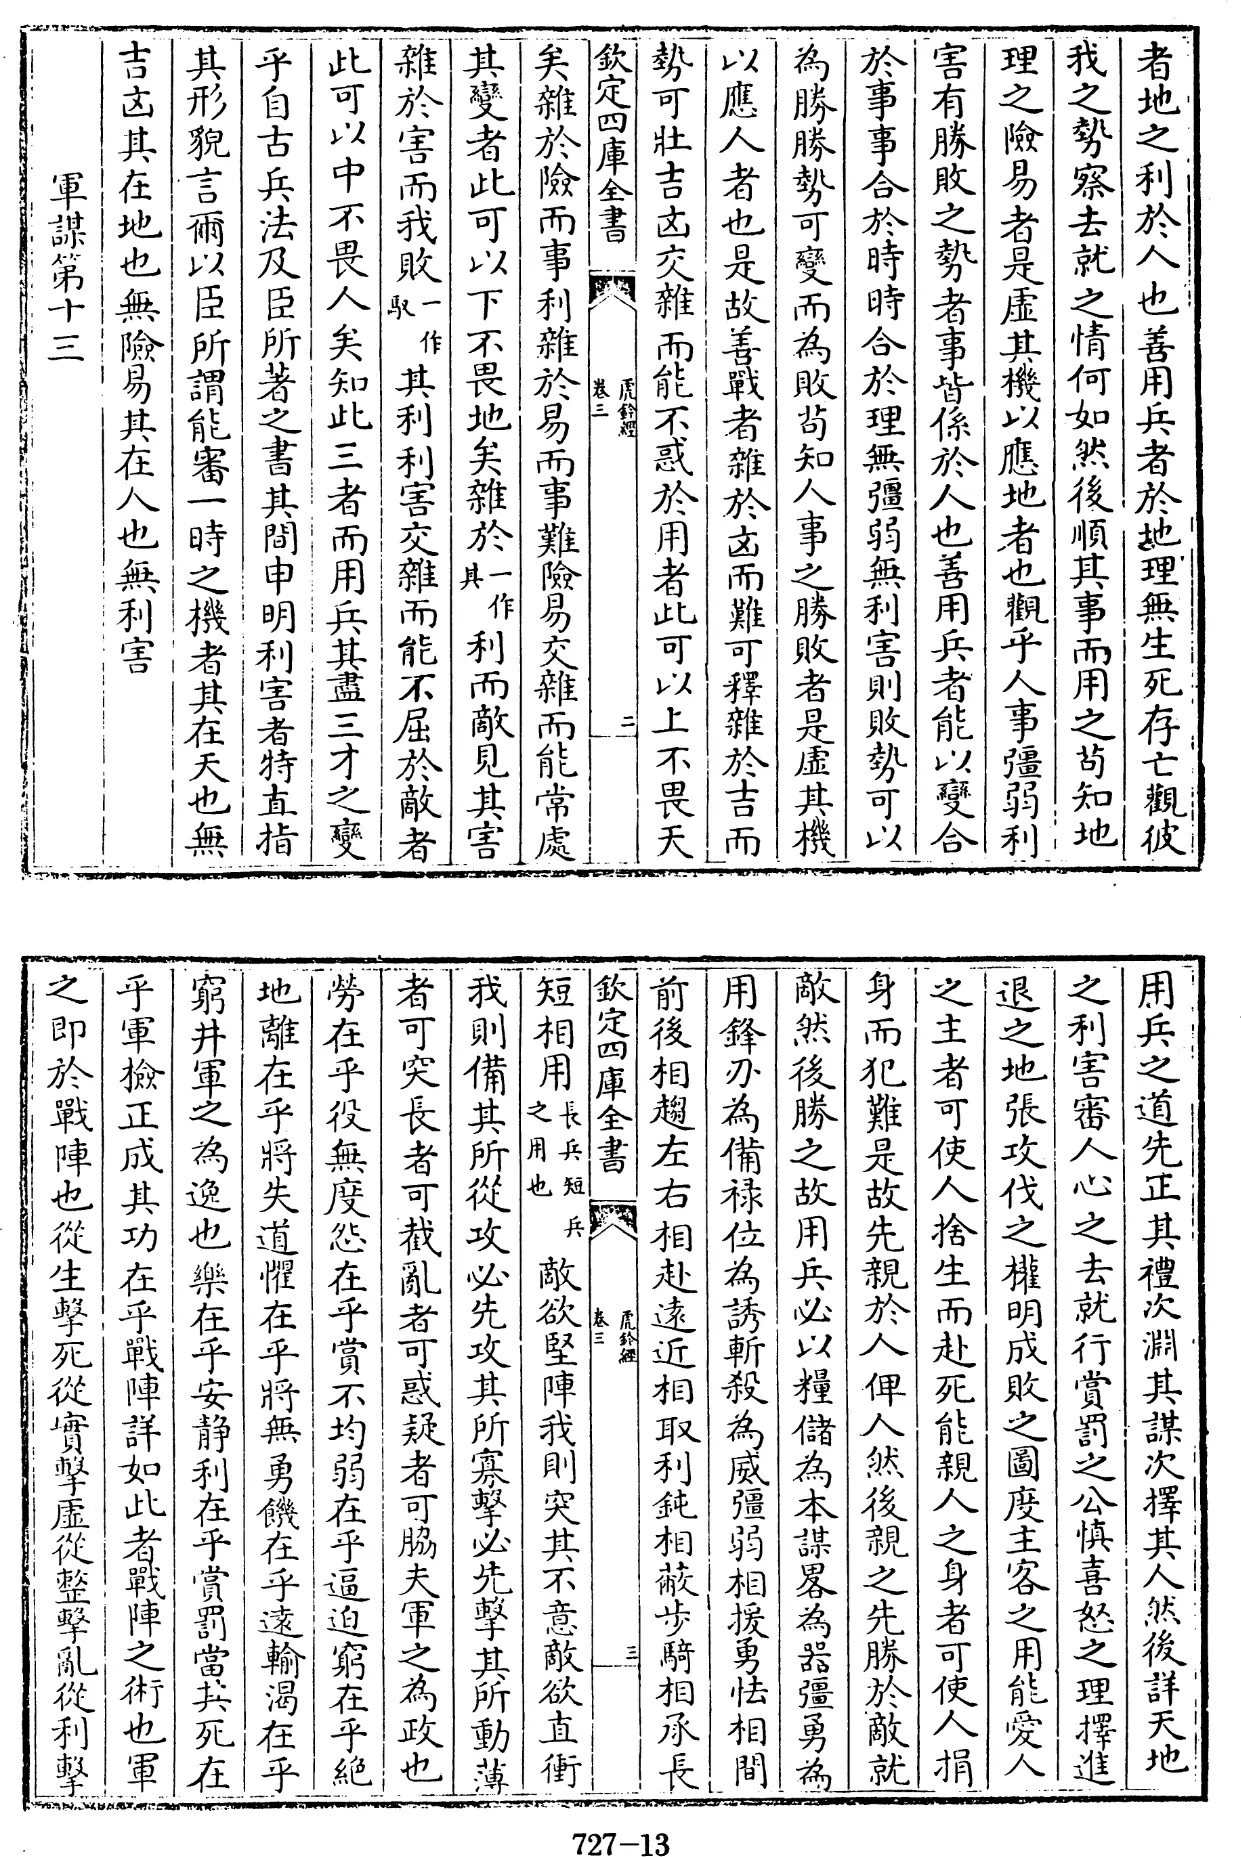 者地之利於人也善用兵者於地理無生死存亡觀彼
我之勢察去就之情何如然後順其事而用之茍知地
理之險易者是虛其機以應地者也觀乎人事彊弱利
害有勝敗之勢者事皆係於人也善用兵者能以變合
於事事合於時時合於理無彊弱無利害則敗勢可以
為勝勝勢可變而為敗茍知人事之勝敗者是虛其機
以應人者也是故善戰者雜於凶而難可釋雜於吉而
勢可壯吉凶交雜而能不惑於用者此可以上不畏天
欽定四庫全書
虎鈐經
卷三
二
矣雜於險而事利雜於易而事難險易交雜而能常處
其變者此可以下不畏地矣雜於一作其利而敵見其害
雜於害而我敗一作馭其利利害交雜而能不屈於敵者
此可以中不畏人矣知此三者而用兵其盡三才之變
乎自古兵法及臣所著之書其間申明利害者特直指
其形貌言爾以臣所謂能審一時之機者其在天也無
吉凶其在地也無險易其在人也無利害
軍謀第十三
用兵之道先正其禮次淵其謀次擇其人然後詳天地
之利害審人心之去就行賞罰之公慎喜怒之理擇進
退之地張攻伐之權明成敗之圖度主客之用能愛人
之主者可使人捨生而赴死能親人之身者可使人捐
身而犯難是故先親於人俾人然後親之先勝於敵就
敵然後勝之故用兵必以糧儲為本謀畧為器彊勇為
用鋒刃為備祿位為誘斬殺為威彊弱相援勇怯相間
前後相趨左右相赴遠近相取利鈍相蔽步騎相承長
欽定四庫全書
虎鈐經
卷三
三
短相用長兵短兵之用也敵欲堅陣我則突其不意敵欲直衝
我則備其所從攻必先攻其所寡擊必先擊其所動薄
者可突長者可截亂者可惑疑者可脇夫軍之為政也
勞在乎役無度怨在乎賞不均弱在乎逼迫窮在乎絕
地離在乎將失道懼在乎將無勇饑在乎遠輸渴在乎
窮井軍之為逸也樂在乎安静利在乎賞罰當其死在
乎軍檢正成其功在乎戰陣詳如此者戰陣之術也軍
之即於戰陣也從生擊死從實擊虛從整擊亂從利擊
727-13